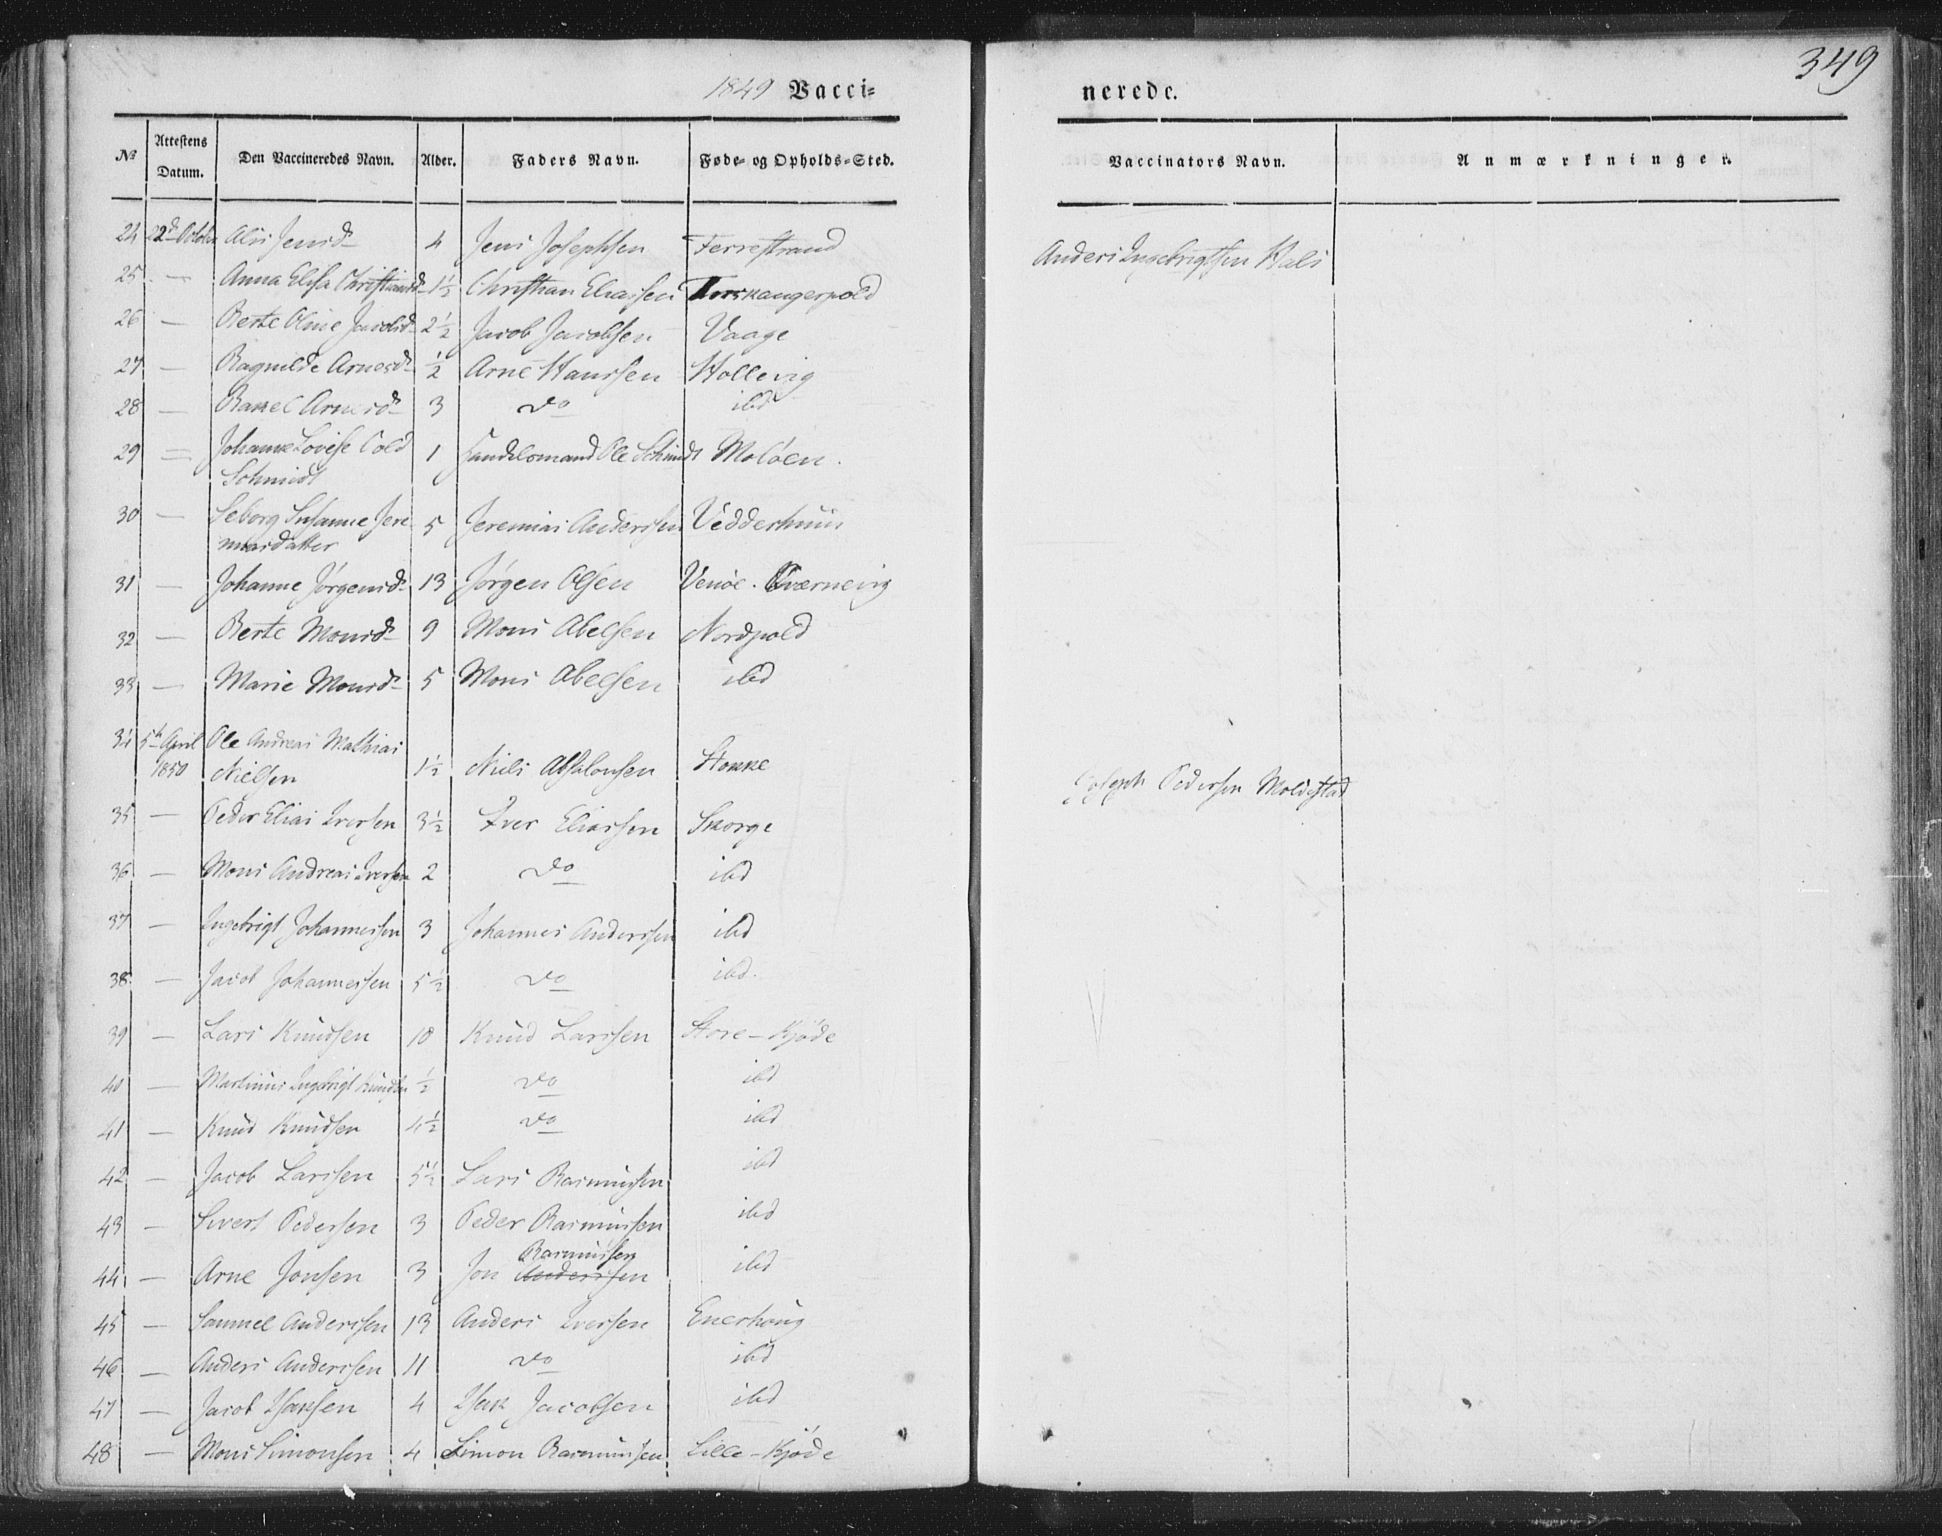 349
1849 Vacci=
nerede.
No Attestens Datum. Den Vaccineredes Navn. Alder. Faders Navn. Føde- og Opholds-Sted. Vaccinators Navn. Anmærkninger.
24 22d October Alis Jensd- 4 Jens Josephsen Ferrestrand Anders Ingebrigtsen Hals
25 — Anna Elisa Christiansd- 1½ Christian Eliassen Torskangerpold
26 — Berte Oline Jacobsd- 2½ Jacob Jacobsen Vaage
27 — Ragnilde Arnesd- ½ Arne Hanssen Hollevig
28 — Rakel Arnesd- 3 do ibd
29 = Johanne Lovise Cold
Schmidt 1 Handelsmand Ole Schmidt Moløen.
30 — Seborg Susanne Jere-
miasdatter 5 Jeremias Anderssen Vedderhuus
31 — Johanne Jørgensd- 13 Jørgen Olsen Venøe. Kværnevig
32 — Berte Monsd- 9 Mons Abelsen Nordpold
33 — Marie Monsd- 5 Mons Abelsen ibd
34 5te April Ole Andreas Mathias
1850 Nielsen 1½ Niels Absalonsen Stokke Joseph Pedersen Moldestad
35 — Peder Elias Iversen 3½ Iver Eliassen Skorge
36 — Mons Andreas Iversen 2 do ibd
37 — Ingebrigt Johannessen 3 Johannes Anderssen ibd
38 — Jacob Johannessen 5½ do ibd.
39 — Lars Knudsen 10 Knud Larssen Store-Kjøde
40 — Martinus Ingebrigt Knudsen ½ do ibd
41 — Knud Knudsen 4½ do ibd
42 — Jacob Larssen 5½ Lars Rasmussen ibd
43 — Sivert Pedersen 3 Peder Rasmussen ibd
Rasmussen
44 — Arne Jonsen 3 Jon Anderssen ibd
45 — Samuel Anderssen 13 Anders Iversen Enerhoug
46 — Anders Anderssen 11 do ibd
47 — Jacob Isaksen 4 Isak Jacobsen ibd
48 — Mons Simonsen 4 Simon Rasmussen Lille-Kjøde